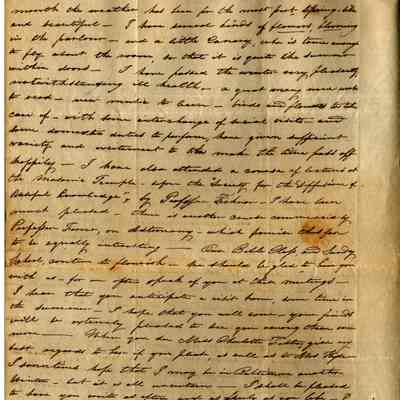 month the weather has been for the most part Spring-like
and beautiful - I have several kinds of flowers blooming
in the parlour - and a little Canary, who is tame enough
to fly about the room, so that it is quite like summer
within doors - I have passed the winter very pleasantly
notwithstanding ill health - a great many new works
to read - new music to learn - birds and flowers to take
care of - with some interchange of social visits - and
some domestic duties to perform, have given sufficient
variety and excitement to make the time pass off
happily - I have also attended a course of lectures at
the Masonic Temple - upon the Society for the Diffusion of
Useful Knowledge, by Professor - I have been
much pleased - there is another course commenced by
Professor Farrar, on Astronomy - which promises thus far
to be equally interesting - Our Bible Class and Sunday
School continue to flourish - we should be glad to have you
with us - for we often speak of you at these meetings -
I hear that you anticipate a visit home, some time in
the summer - I hope that you will come - your friends
will be extremely pleased to see you among them once
more - When you see Miss Charlotte give my
best regards to her if you please, as well as to Mrs
I sometimes hope that I may be in Baltimore another
Winter - but it is all uncertain - I shall be pleased
to have you write as often and as freely as you like - I